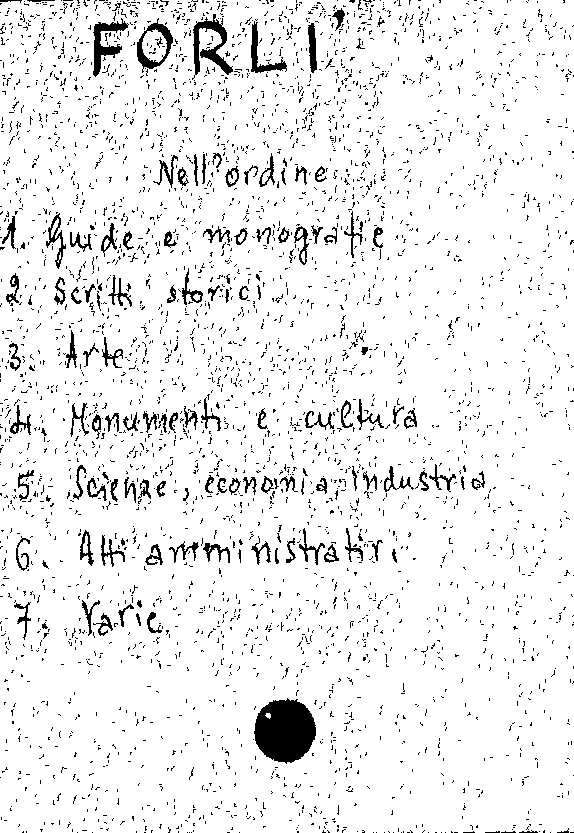 FORLI'
Nell'ordine
1. Guide e monografie
2. Scritti storici
3. Arte
4. Monumenti e cultura
5. Scienze, economia, industria
6. Atti amministrativi
7. Varie